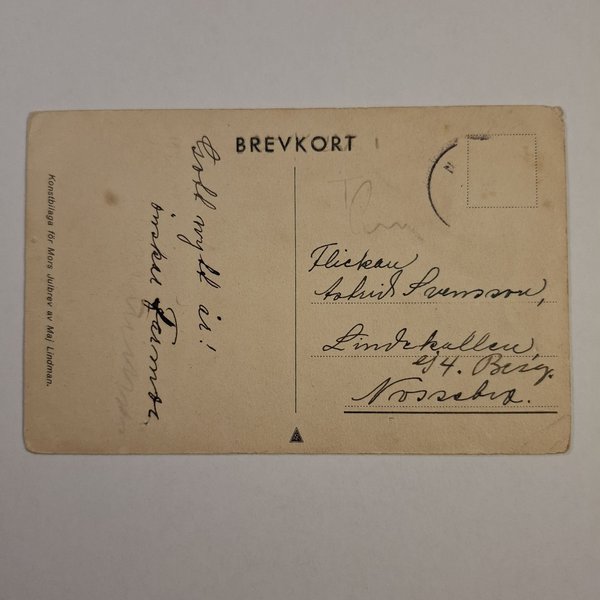 BREVKORT
Konstbilaga för Mors Julbrev av Maj Lindman.
Gott nytt år!
önskar Farmor.
Flickan
Astrid Svensson,
Lindekullen
4. Berg.
Nossebro.